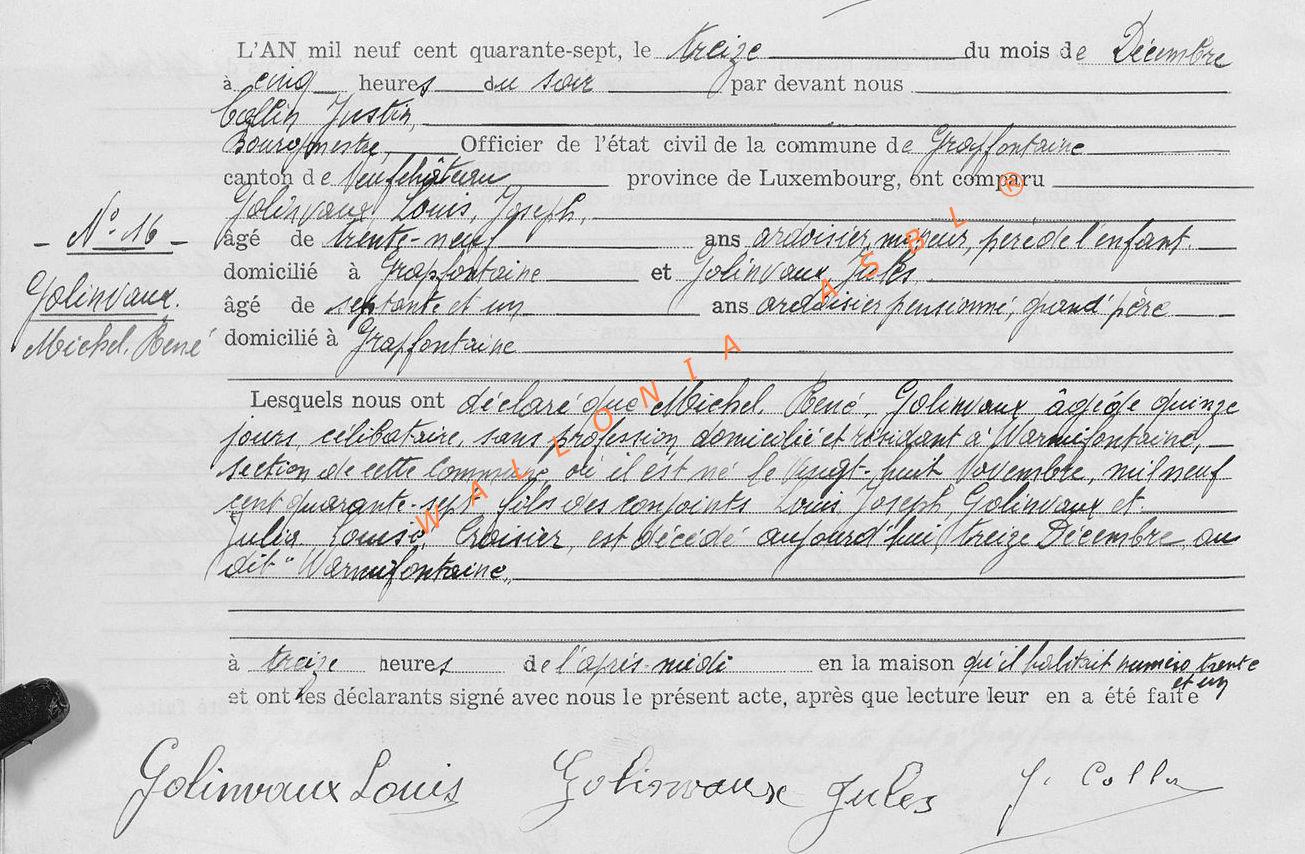 L'AN mil neuf cent quarante-sept, le treize du mois de Décembre
à cinq heures du soir par devant nous
Collin Justin,
Bourgmestre, Officier de l'état civil de la commune de Grapfontaine
canton de Neufchâteau province de Luxembourg, ont comparu
Golinvaux Louis, Joseph,
- N° 16 - âgé de trente-neuf ans ardoisier mineur, père de l'enfant
domicilié à Grapfontaine et Golinvaux Jules
Golinvaux. âgé de septante et un ans ardoisier pensionné, grand'père
Michel, René domicilié à Grapfontaine
Lesquels nous ont déclaré que Michel, René, Golinvaux âgé de quinze
jours, célibataire, sans profession, domicilié et résidant à Warmifontaine,
section de cette commune, où il est né le vingt-huit Novembre, mil neuf
cent quarante-sept fils des conjoints Louis Joseph Golinvaux et
Julia Louise Croisier, est décédé aujourd'hui, treize Décembre, au
dit "Warmifontaine,,
à treize heures de l'après-midi en la maison qu'il habitait numéro trente
et un
et ont les déclarants signé avec nous le présent acte, après que lecture leur en a été faite
Golinvaux Louis Golinvaux Jules J. Collin
WALLONIA ASBL ®